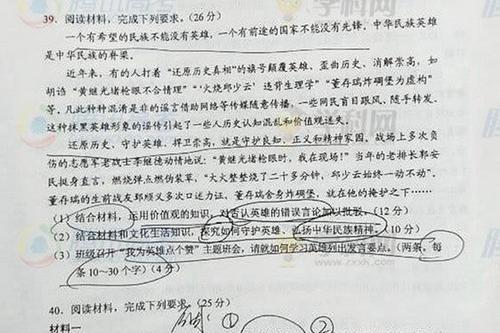 39. 阅读材料，完成下列要求。（26分）
一个有希望的民族不能没有英雄，一个有前途的国家不能没有先锋。中华民族英雄
是中华民族的脊梁。
近年来，有的人打着“还原历史真相”的旗号颠覆英雄、歪曲历史、消解崇高，如
胡诌“黄继光堵枪眼不合情理”“火烧邱少云 违背生理学”“董存瑞炸碉堡为虚构”
等。凡此种种混淆是非的谣言借助网络等传媒随意传播，一些网民盲目跟风、随手转发。
这种抹黑英雄形象的谣传引起了一些人历史认知混乱和价值观迷失。
还原历史、守护英雄、捍卫崇高，就是守护良知、正义和精神家园。战场上多次负
伤的志愿军老战士李继德动情地说：“黄继光堵枪眼时，我在现场！”当年的老排长郭安
民挺身直言，燃烧弹点燃伪装草，“大火整整烧了二十多分钟，邱少云始终一动不动”。
董存瑞的生前战友郅顺义多次口述力证，董存瑞舍身炸碉堡，就在他的掩护之下……
（1）结合材料，运用价值观的知识，对否认英雄的错误言论加以批驳。（12分）
（2）结合材料和文化生活知识，探究如何守护英雄、弘扬中华民族精神。（10分）
（3）班级召开“我为英雄点个赞”主题班会，请就如何学习英雄列出发言要点。（两条，每
条10～30个字）（4分）
40. 阅读材料，完成下列要求。（25分）
材料一
①